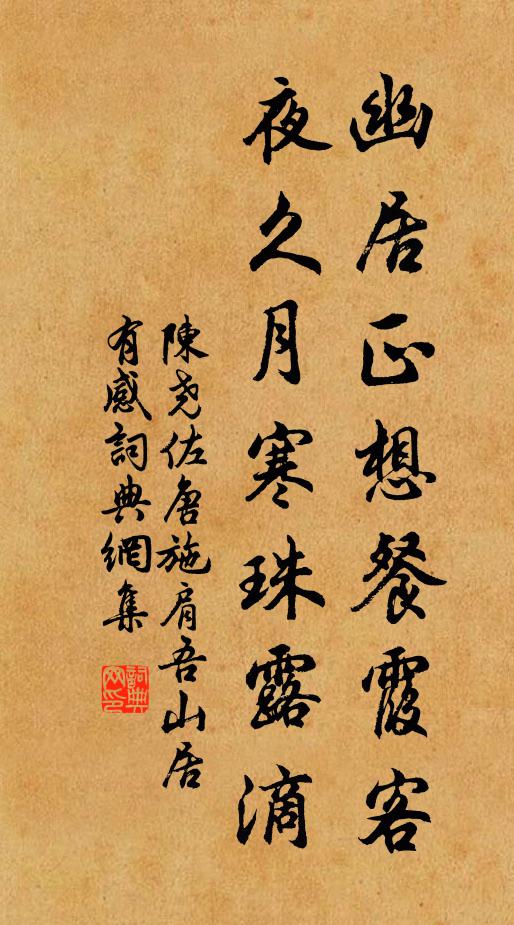 幽居正想餐霞客
夜久月寒珠露滴
陳堯佐唐施肩吾山居
有感詞典網集
詞典網印